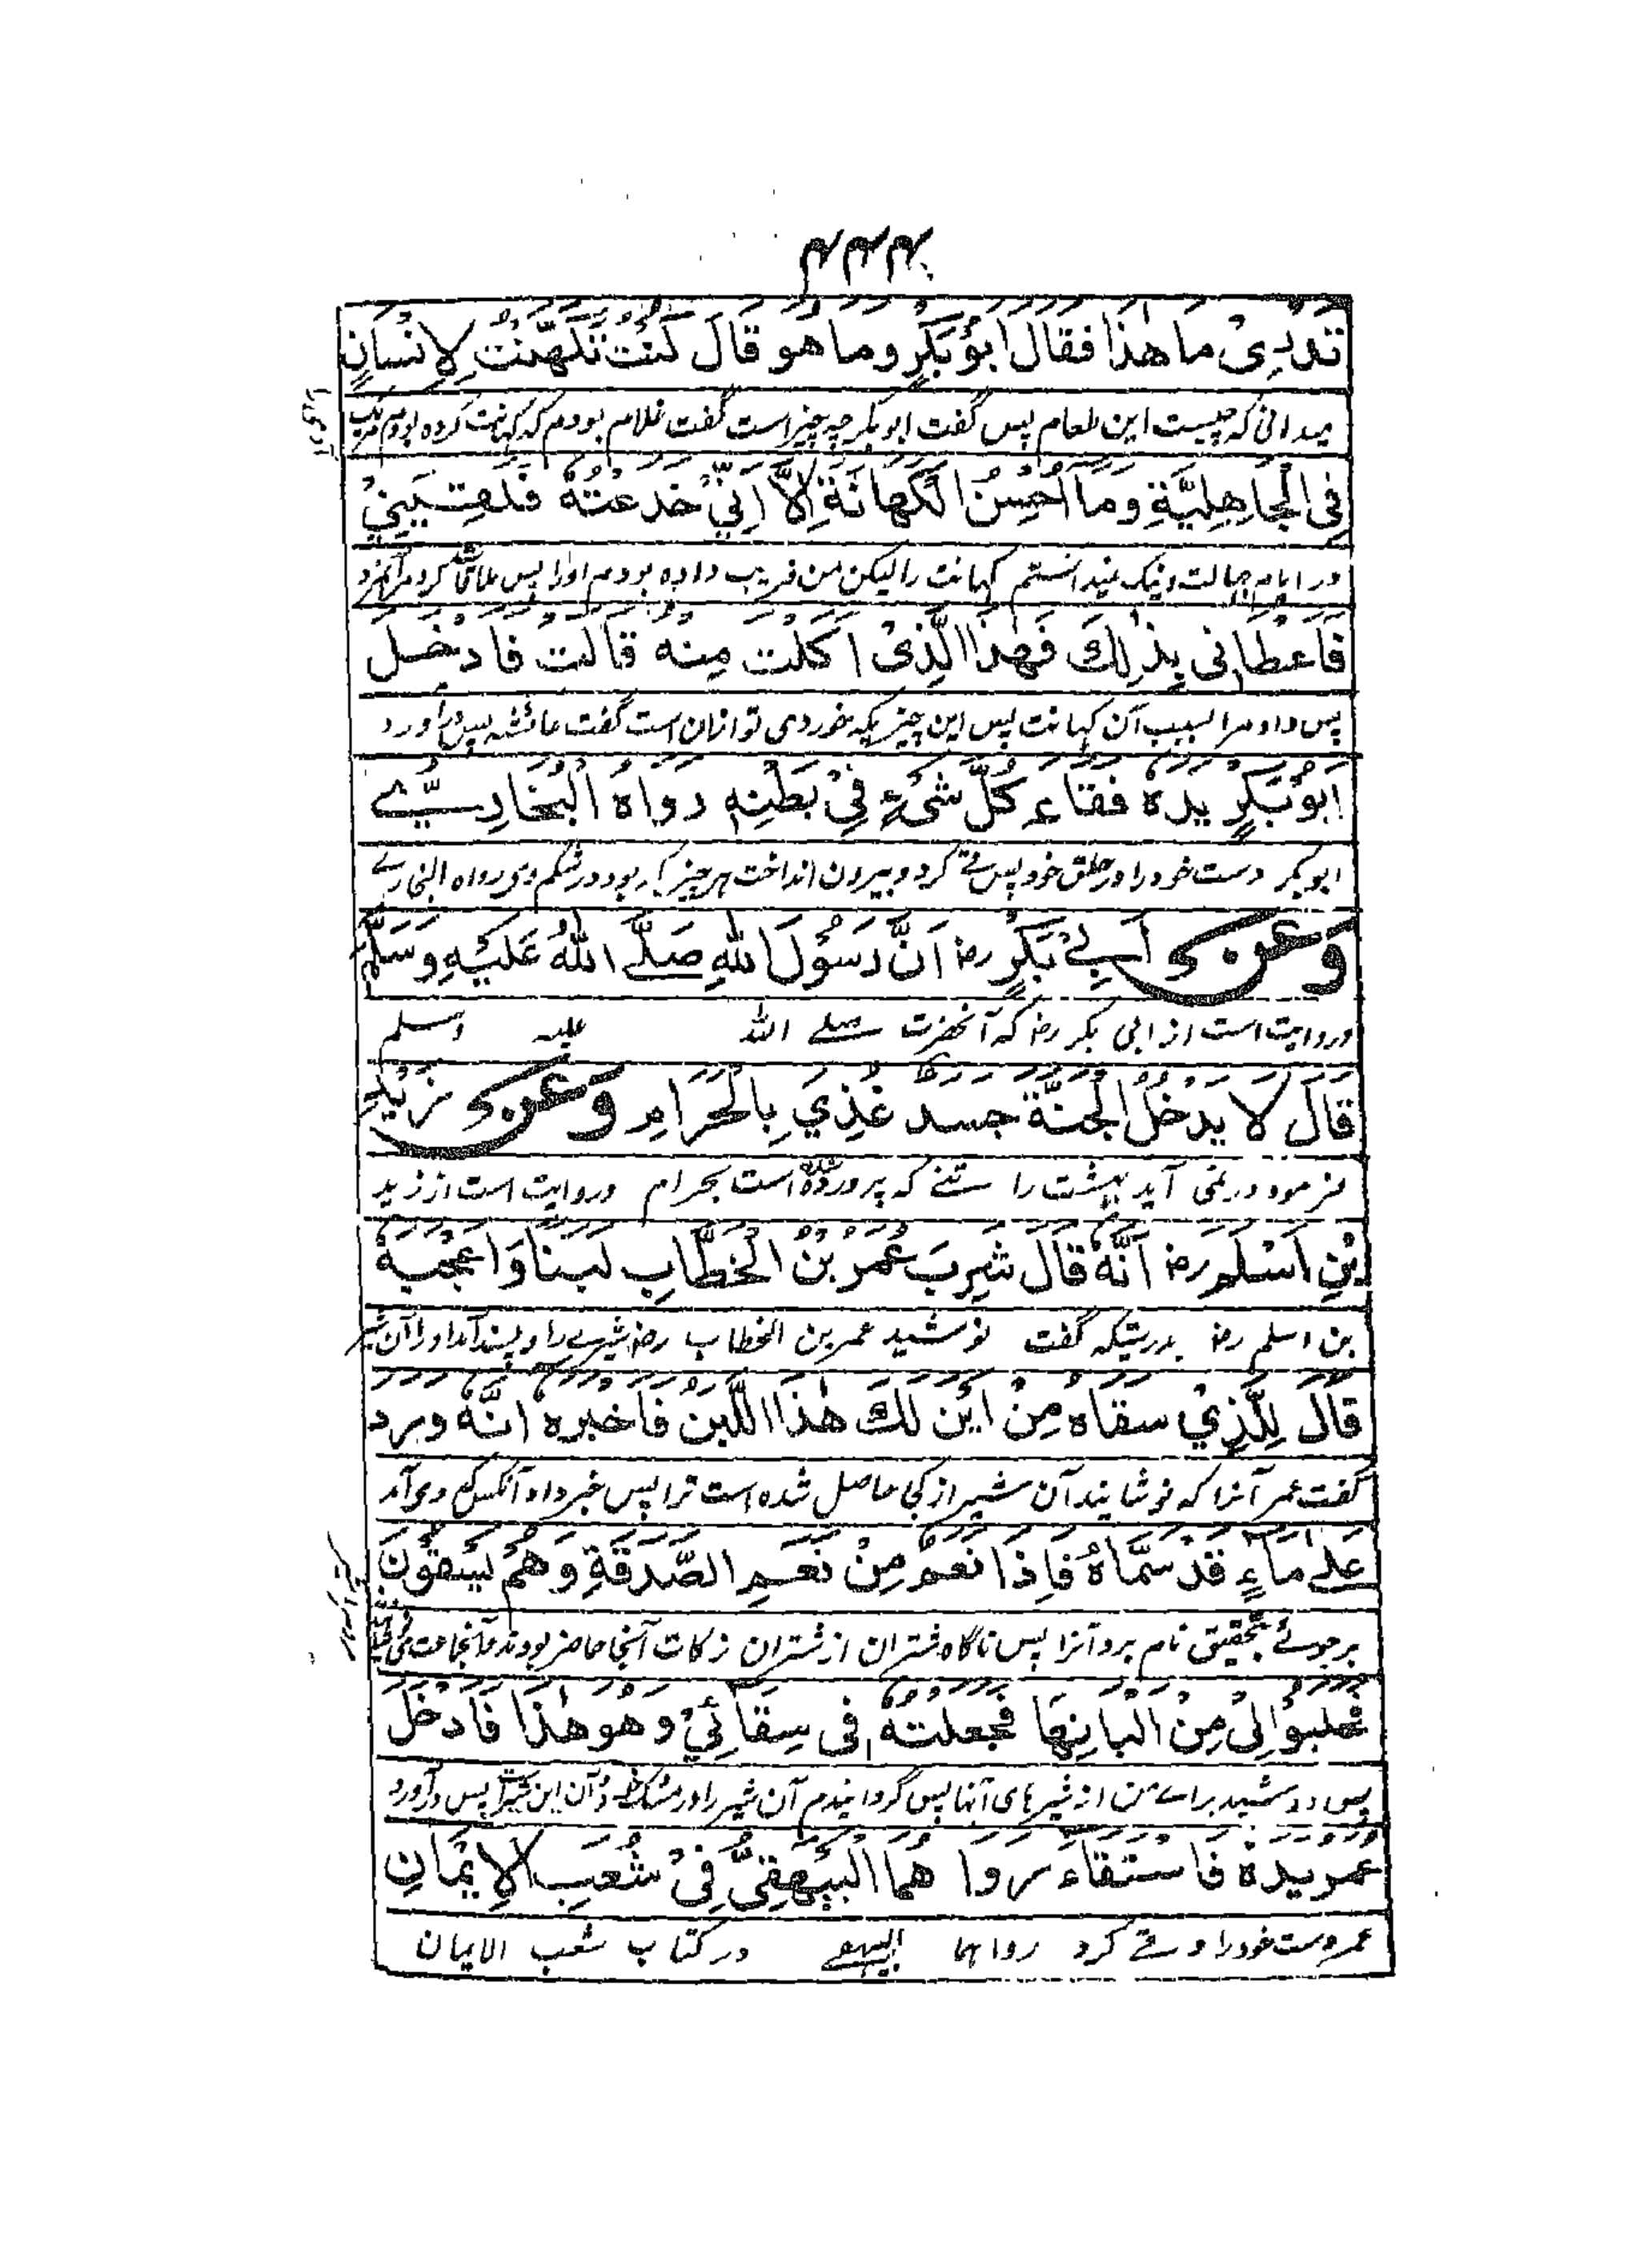 ۴۴۴
تَدْرِیْ مَا هٰذَا فَقَالَ اَبُوْبَکْرٍ وَمَا هُوَ قَالَ کُنْتُ تَکَهَّنْتُ لِاِنْسَانٍ
میدانی که چیست این طعام پس گفت ابوبکر چه چیز است گفت غلام بودم که کهانت کرده بودم
فِی الْجَاهِلِیَّةِ وَمَا اُحْسِنُ الْکَهَانَةَ اِلَّا اَنِّیْ خَدَعْتُهٗ فَلَقِیَنِیْ
در ایام جهالت و نیک نمیدانستم کهانت را لیکن من فریب داده بودم او را پس ملاقات کرد مرا
فَاَعْطَانِی بِذٰلِكَ فَهٰذَا الَّذِیْ اَکَلْتَ مِنْهُ قَالَتْ فَادْخَلَ
پس داد مرا بسبب آن کهانت پس این چیزیکه خوردی تو ازان است گفت عائشه پس درآورد
اَبُوْبَکْرٍ یَدَهٗ فَقَاءَ کُلَّ شَیْءٍ فِیْ بَطْنِهٖ رَوَاهُ الْبُخَارِیُّ
ابوبکر دست خود را در حلق خود پس قے کرد و بیرون انداخت هر چیز که بود در شکم وی رواه البخاری
وَعَنْ اَبِیْ بَکْرٍ رض اَنَّ رَسُوْلَ اللّٰهِ صَلَّے اللّٰهُ عَلَیْهِ وَسَلَّمَ
و روایت است از ابی بکر رض که آنحضرت صلے الله علیه وسلم
قَالَ لَا یَدْخُلُ الْجَنَّةَ جَسَدٌ غُذِیَ بِالْحَرَامِ وَعَنْ زَیْدِ
فرمود در نمی آید بهشت را تنے که پرورده شده است بحرام و روایت است از زید
بْنِ اَسْلَمَ رض اَنَّهٗ قَالَ شَرِبَ عُمَرُ بْنُ الْخَطَّابِ لَبَنًا وَاَعْجَبَهٗ
بن اسلم رض بدرستیکه گفت نوشید عمر بن الخطاب رض شیرے را و پسند آمد او را آن شیر
قَالَ لِلَّذِیْ سَقَاهُ مِنْ اَیْنَ لَكَ هٰذَا اللَّبَنُ فَاَخْبَرَهٗ اَنَّهٗ وَرَدَ
گفت عمر آنرا که نوشانید آن شیر از کجا حاصل شده است ترا پس خبر داد آنکس که وی آمد
عَلٰے مَاءٍ قَدْ سَمَّاهُ فَاِذَا نَعَمٌ مِنْ نَعَمِ الصَّدَقَةِ وَهُمْ یَسْقُوْنَ
بر جوئے بتحقیق نام برد آنرا پس ناگاه شتران از شتران زکات آنجا حاضر بودند
فَحَلَبُوْا لِیْ مِنْ اَلْبَانِهَا فَجَعَلْتُهٗ فِی سِقَائِیْ وَهُوَ هٰذَا فَاَدْخَلَ
پس دوشید براے من از شیرهای آنها پس گردانیدم آن شیر را در مشک
عُمَرُ یَدَهٗ فَاسْتَقَاءَ رَوَا هُمَا الْبَیْهَقِیُّ فِیْ شُعَبِ الْاِیْمَانِ
عمر دست خود را و قے کرد رواهما البیهقے در کتاب شعب الایمان